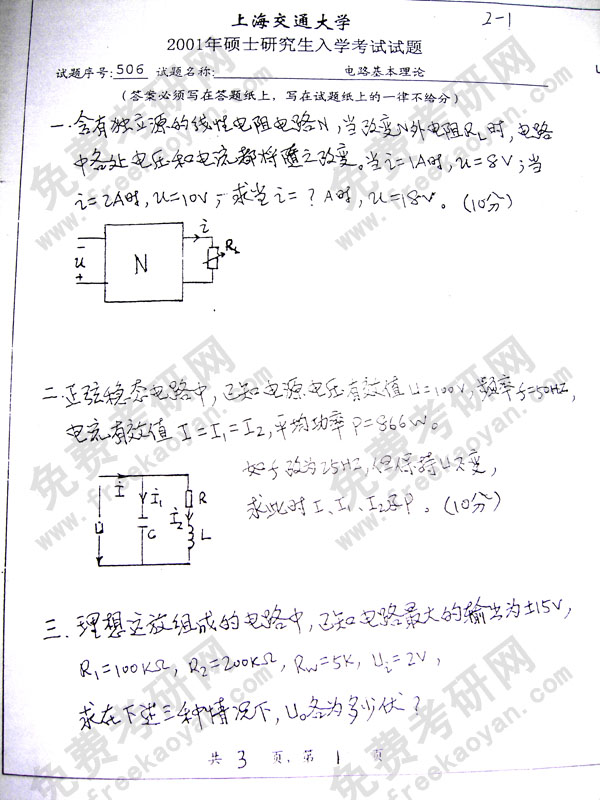 2-1
上海交通大学
2001年硕士研究生入学考试试题
试题序号:506 试题名称: 电路基本理论
(答案必须写在答题纸上，写在试题纸上的一律不给分)
一.含有独立源的线性电阻电路N，当改变N外电阻RL时，电路
中各处电压和电流都将随之改变。当i=1A时，u=8V；当
i=2A时，u=10V；求当i=？A时，u=18V。(10分)
i
-
u
+
N
RL
二.正弦稳态电路中，已知电源电压有效值U=100V，频率f=50HZ，
电流有效值I=I1=I2，平均功率P=866W。
如f改为25HZ，但保持U不变，
求此时I、I1、I2及P。(10分)
İ
İ1
İ2
R
U̇
C
L
三.理想运放组成的电路中，已知电路最大的输出为±15V，
R1=100KΩ，R2=200KΩ，Rw=5K，Ui=2V，
求在下述三种情况下，Uo各为多少伏？
共3页.第1页
免费考研网
www.freekaoyan.com